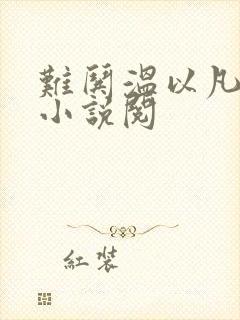 難鬨溫以凡
小說閱
紅裝